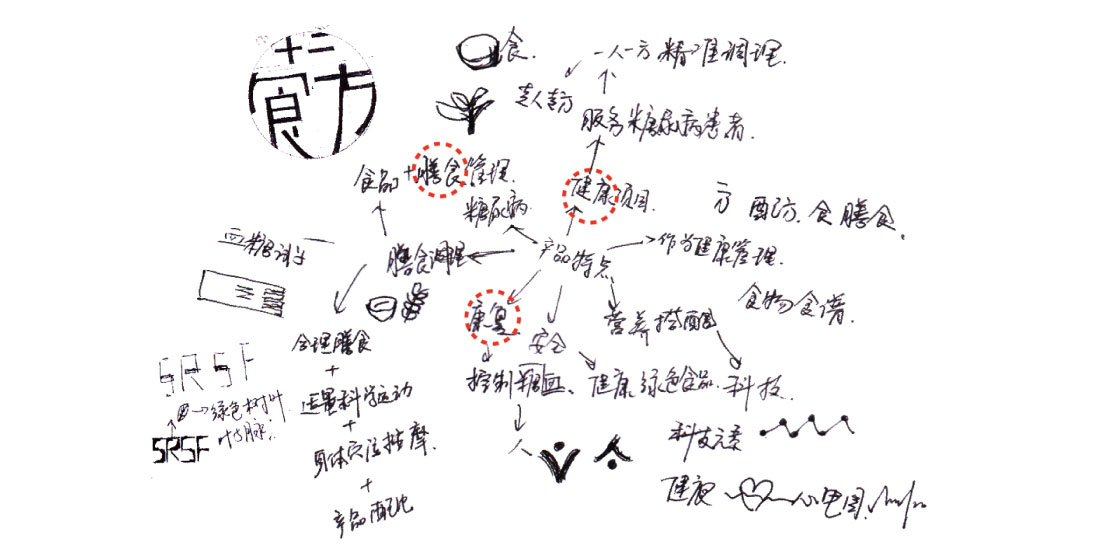 十二
食方
食.
一人一方精准调理.
服务糖尿病患者.
食品+膳食管理.
糖尿病
健康项目.
方 配方. 食 膳食.
血糖试纸
膳食调理
产品特点
作为健康管理.
食物食谱.
康复
营养搭配
安全
合理膳食
+
适量科学运动
+
身体穴位按摩.
+
产品配比
控制糖血、健康绿色食品.
科技.
SRSF
绿色树叶
叶脉.
SRSF
人
科技元素
健康
心电图.